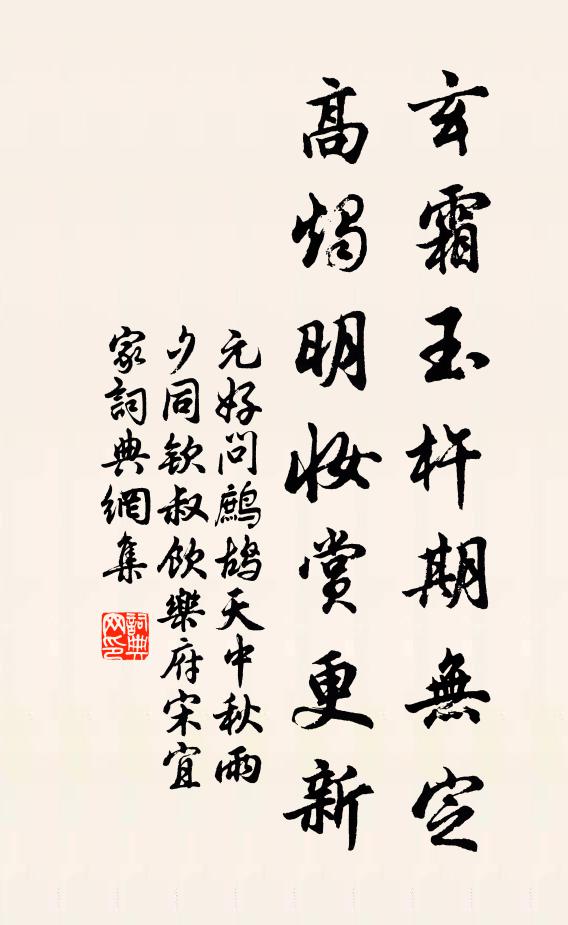 玄霜玉杵期無定
高燭明妝賞更新
元好問鷓鴣天中秋雨
夕同欽叔飲樂府宋宜
家詞典網集
詞典
网印